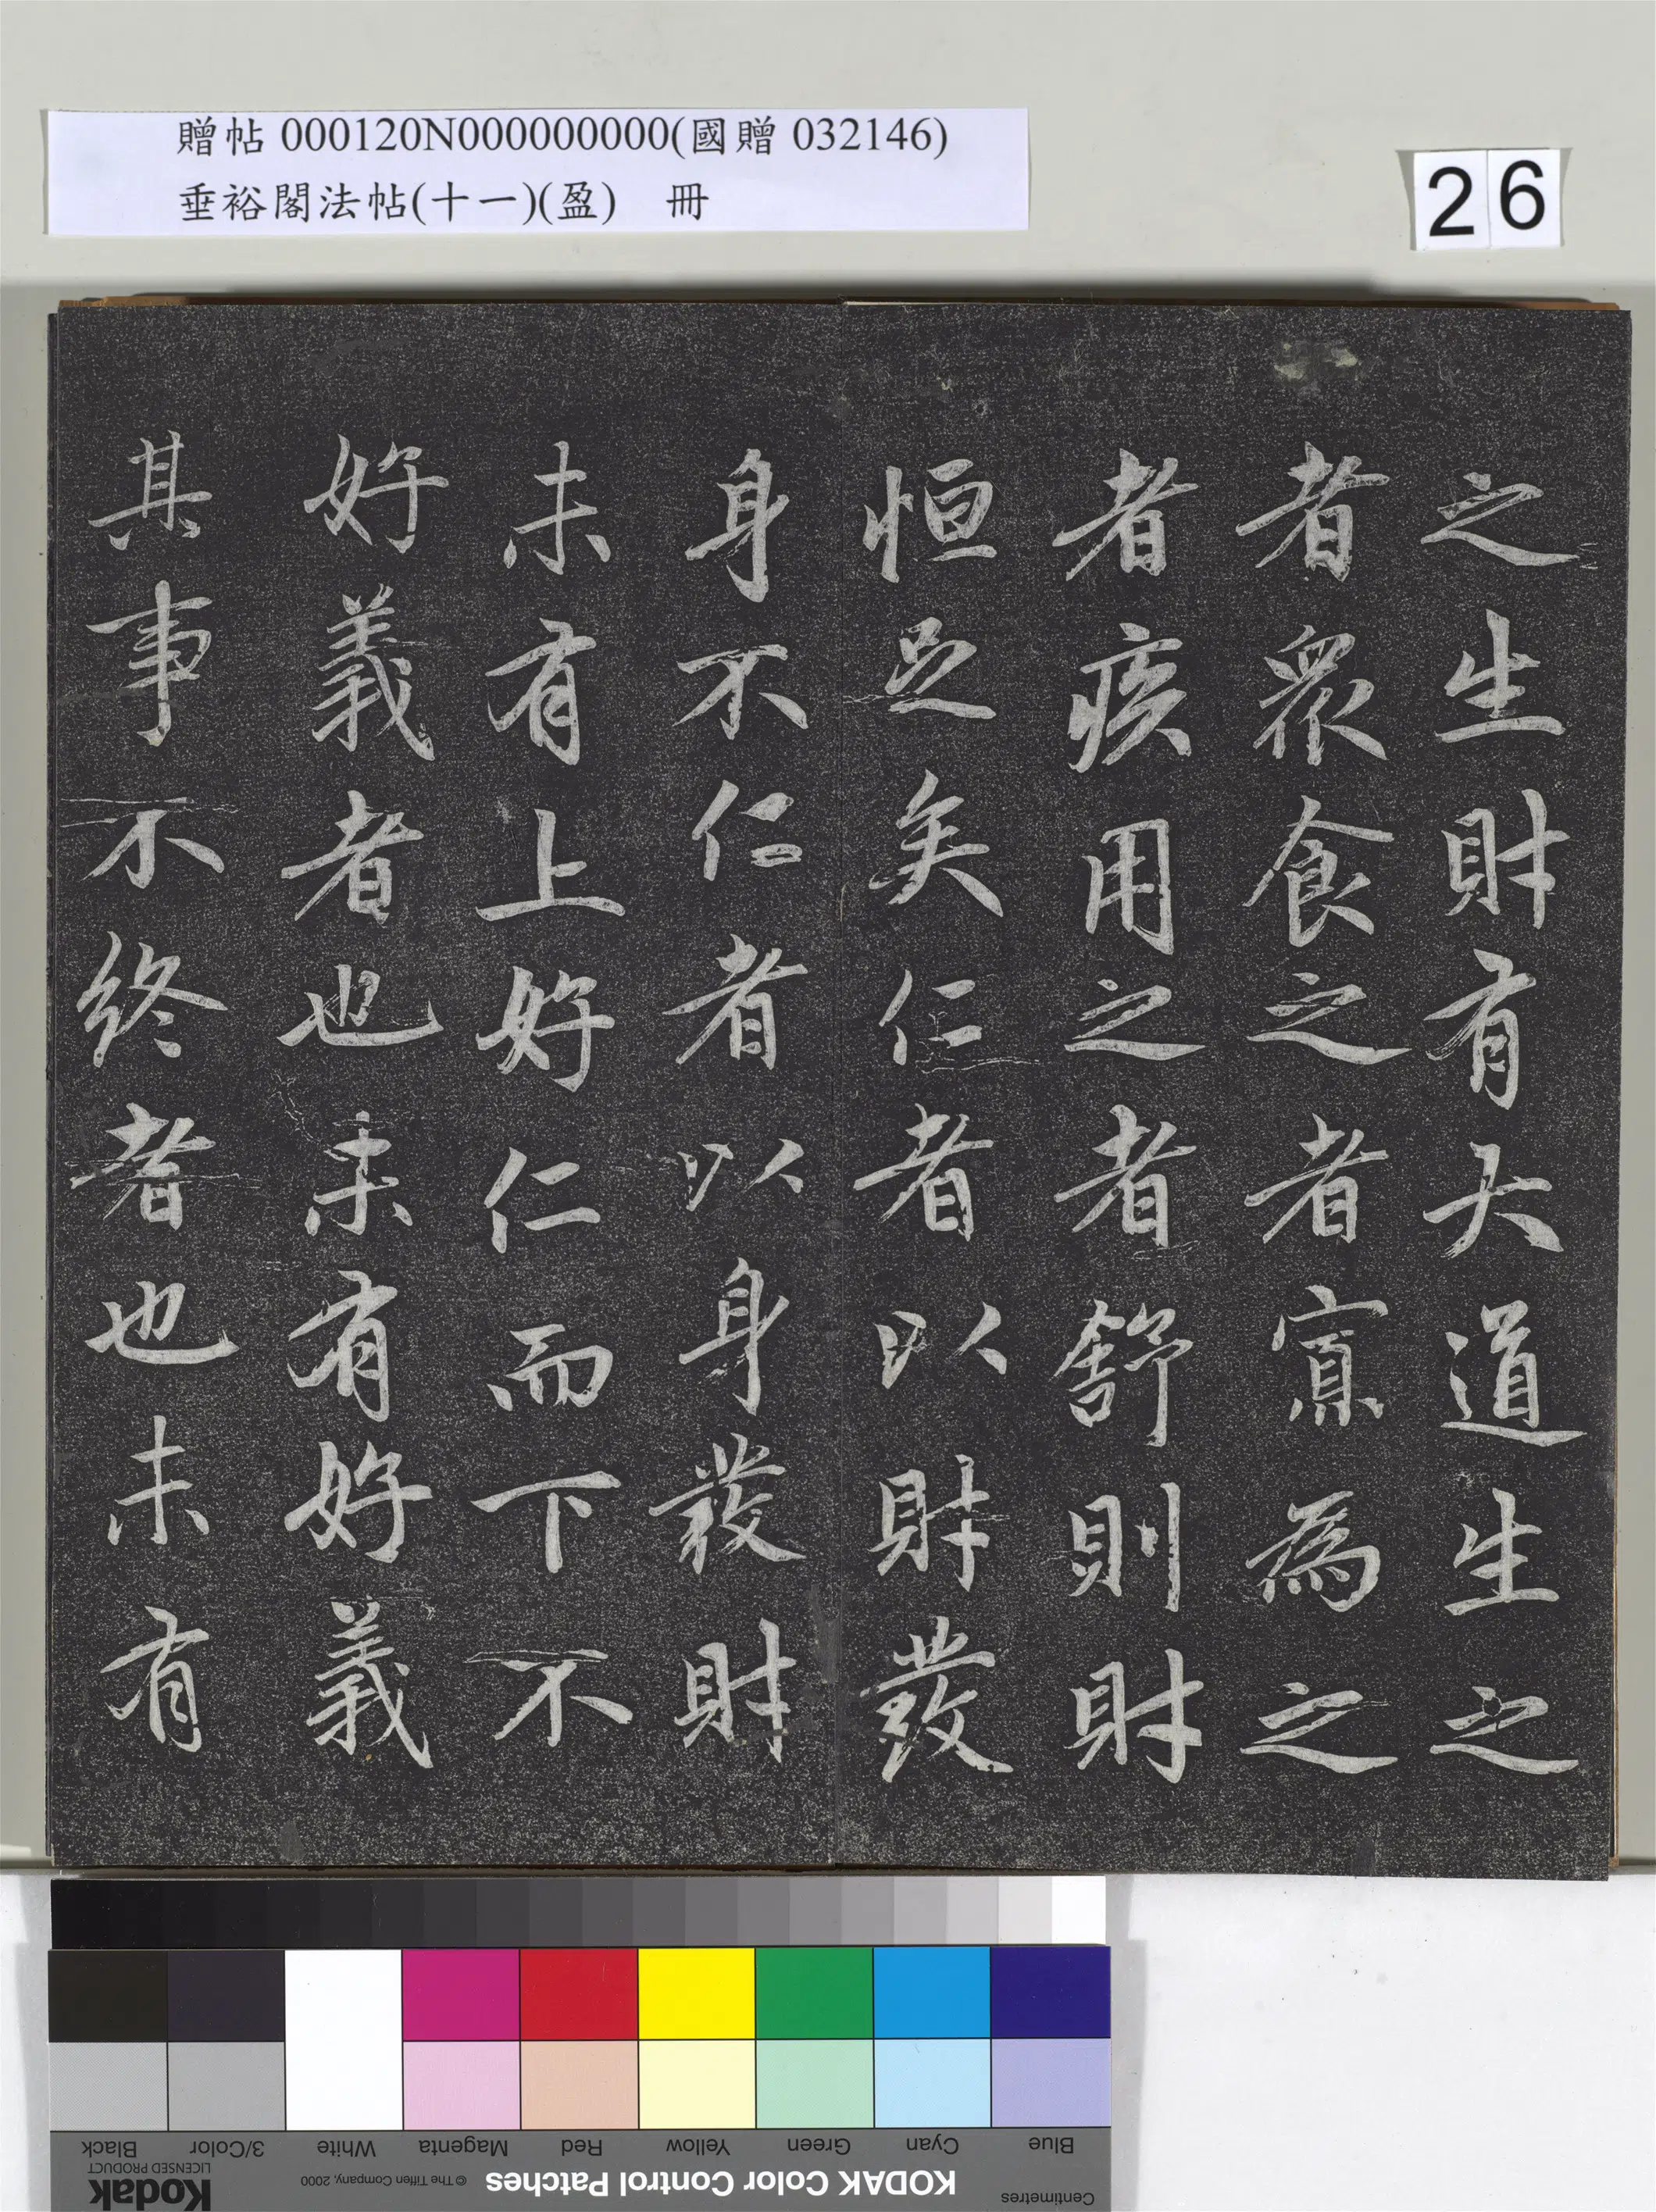 贈帖 000120N000000000(國贈 032146)
垂裕閣法帖(十一)(盈) 冊
26
之生財有大道生之
者眾食之者寡為之
者疾用之者舒則財
恒足矣仁者以財發
身不仁者以身發財
未有上好仁而下不
好義者也未有好義
其事不終者也未有
Black
3/Color
White
Magenta
Red
Yellow
Green
Cyan
Blue
Kodak
LICENSED PRODUCT
© The Tiffen Company, 2000
KODAK Color Control Patches
Centimetres